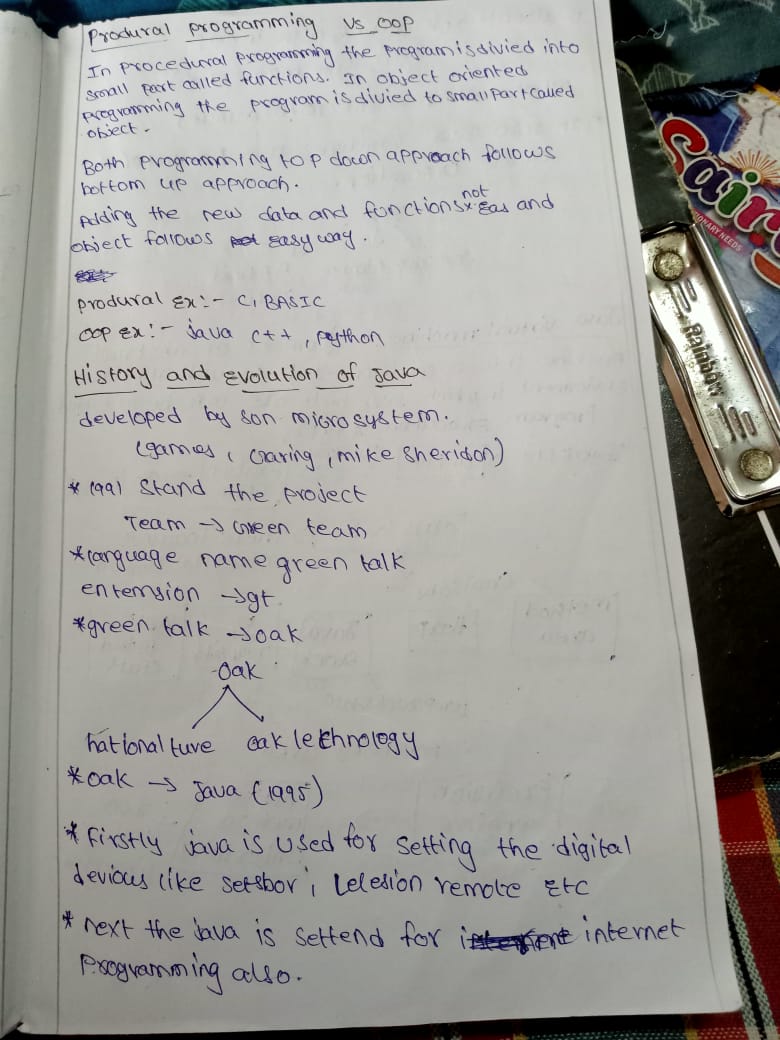 Produral programming vs oop
In procedural programming the program is divied into
small part called functions. In object oriented
programming the program is divied to small part called
object.
Both programming top down approach follows
bottom up approach.
Adding the new data and functions not eas and
object follows easy way.
produral Ex:- C, BASIC
OOP Ex:- java c++, python
History and Evolution of Java
developed by son microsystem.
(games, Graring, mike sheridon)
* 1991 Stand the project
Team → Green team
*language name green talk
entension → gt
*green talk → oak
oak
national ture oak lechnology
*oak → Java (1995)
* Firstly java is used for setting the digital
devious like settbor, lelesion remote Etc
* next the java is settend for internet
programming also.
Cairy
STATIONARY NEEDS
Rainbow